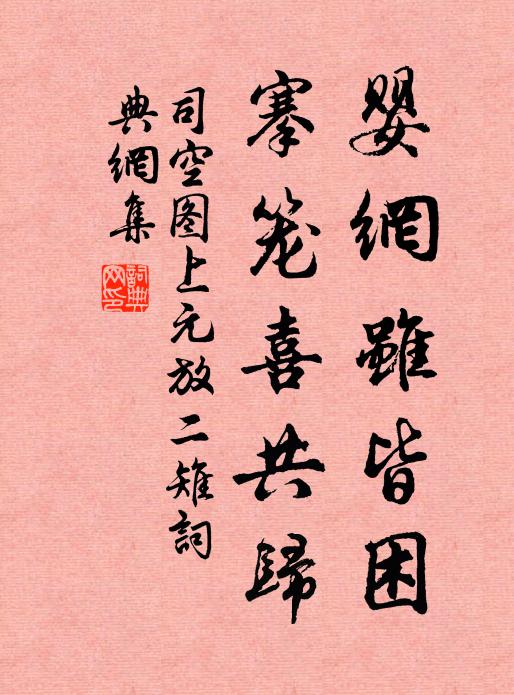 嬰網雖皆困
搴笼喜共歸
司空图上元放二雉詞
典網集
詞典網印